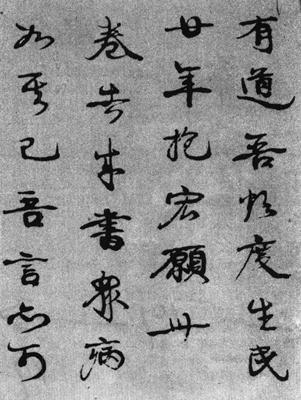 有道吾欲度生民
廿年抱宏願卅
卷告成書眾病
如其已吾言亦可